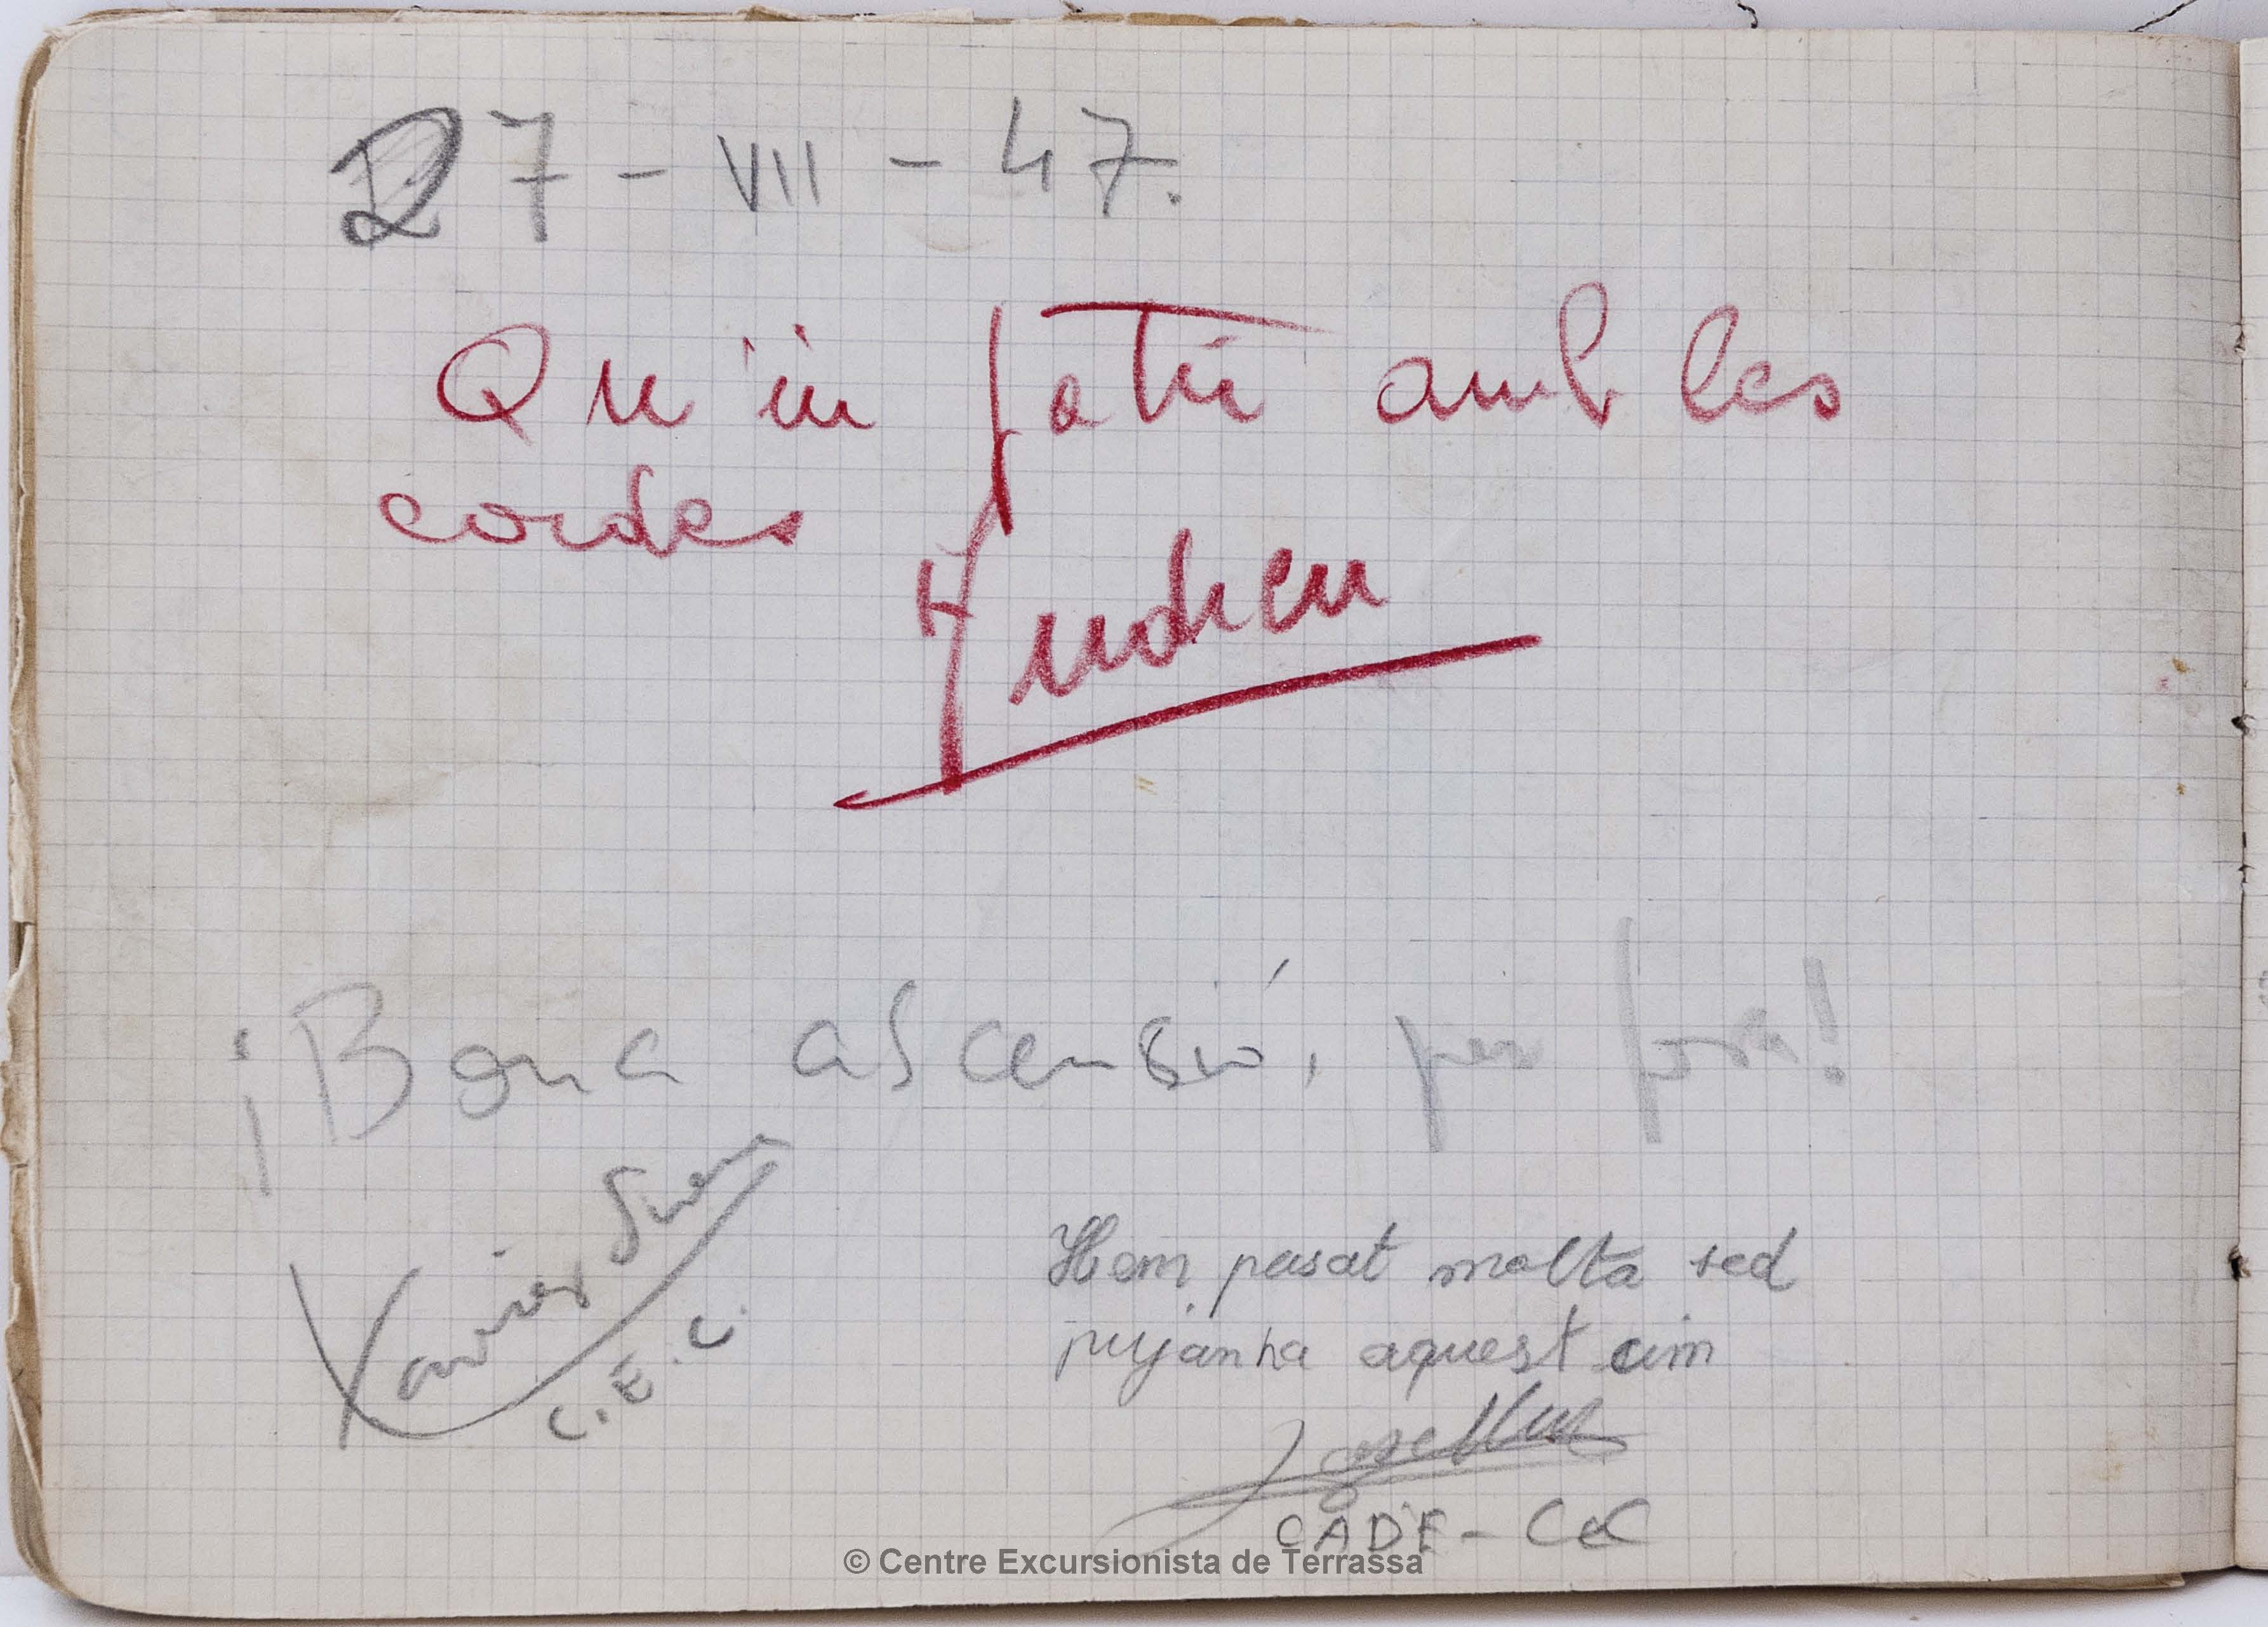 27-VII-47.
Qu'in fatic amb les
cordes
Andreu
¡Bona ascensió, per fora!
Xavier
C.E.C.
Hem pasat molta sed
pujanha aquest cim
CADE-CEC
© Centre Excursionista de Terrassa